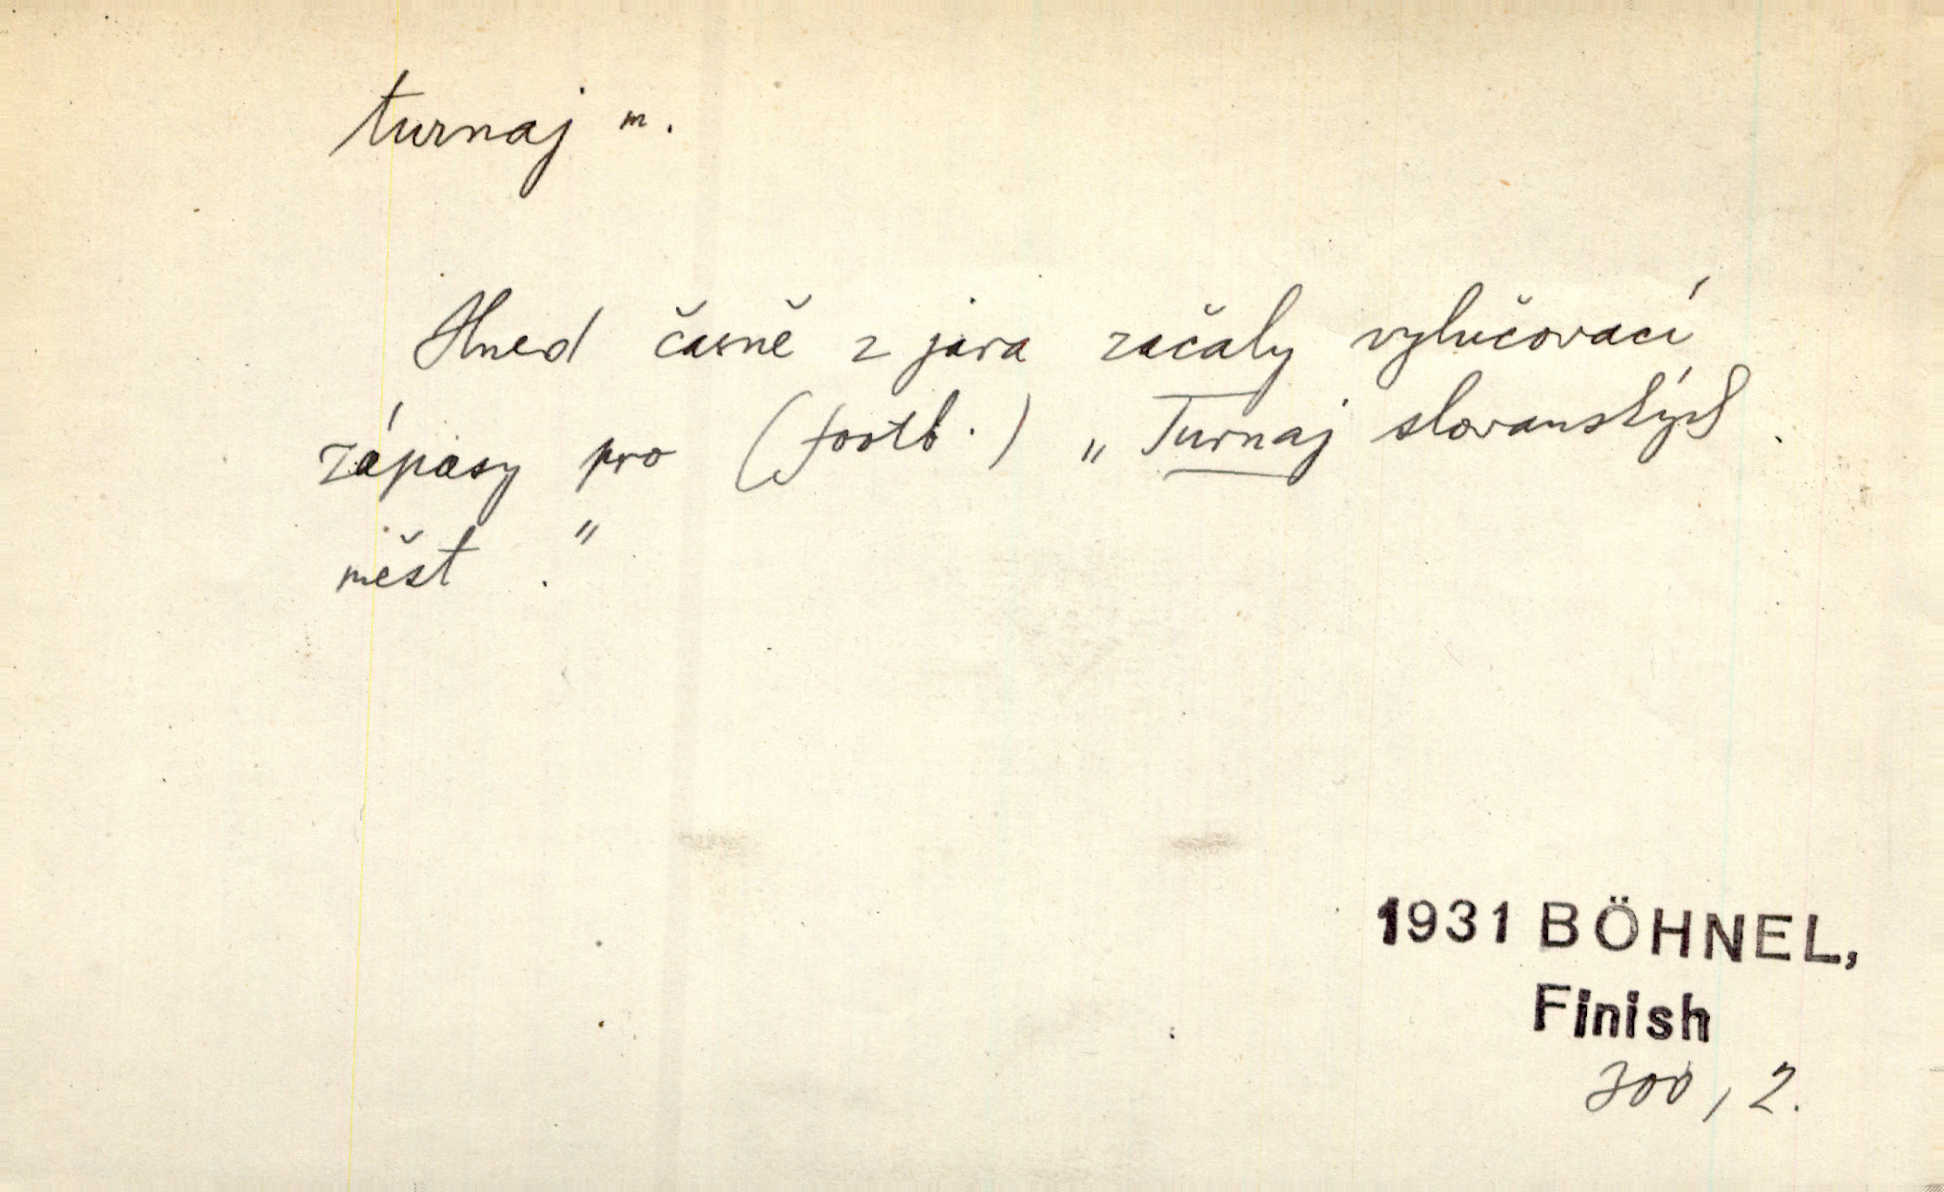 turnaj m.
Hned časně z jara začaly vylučovací
zápasy pro (footb.) „Turnaj slovanských
měst."
1931 BÖHNEL,
Finish
300, 2.